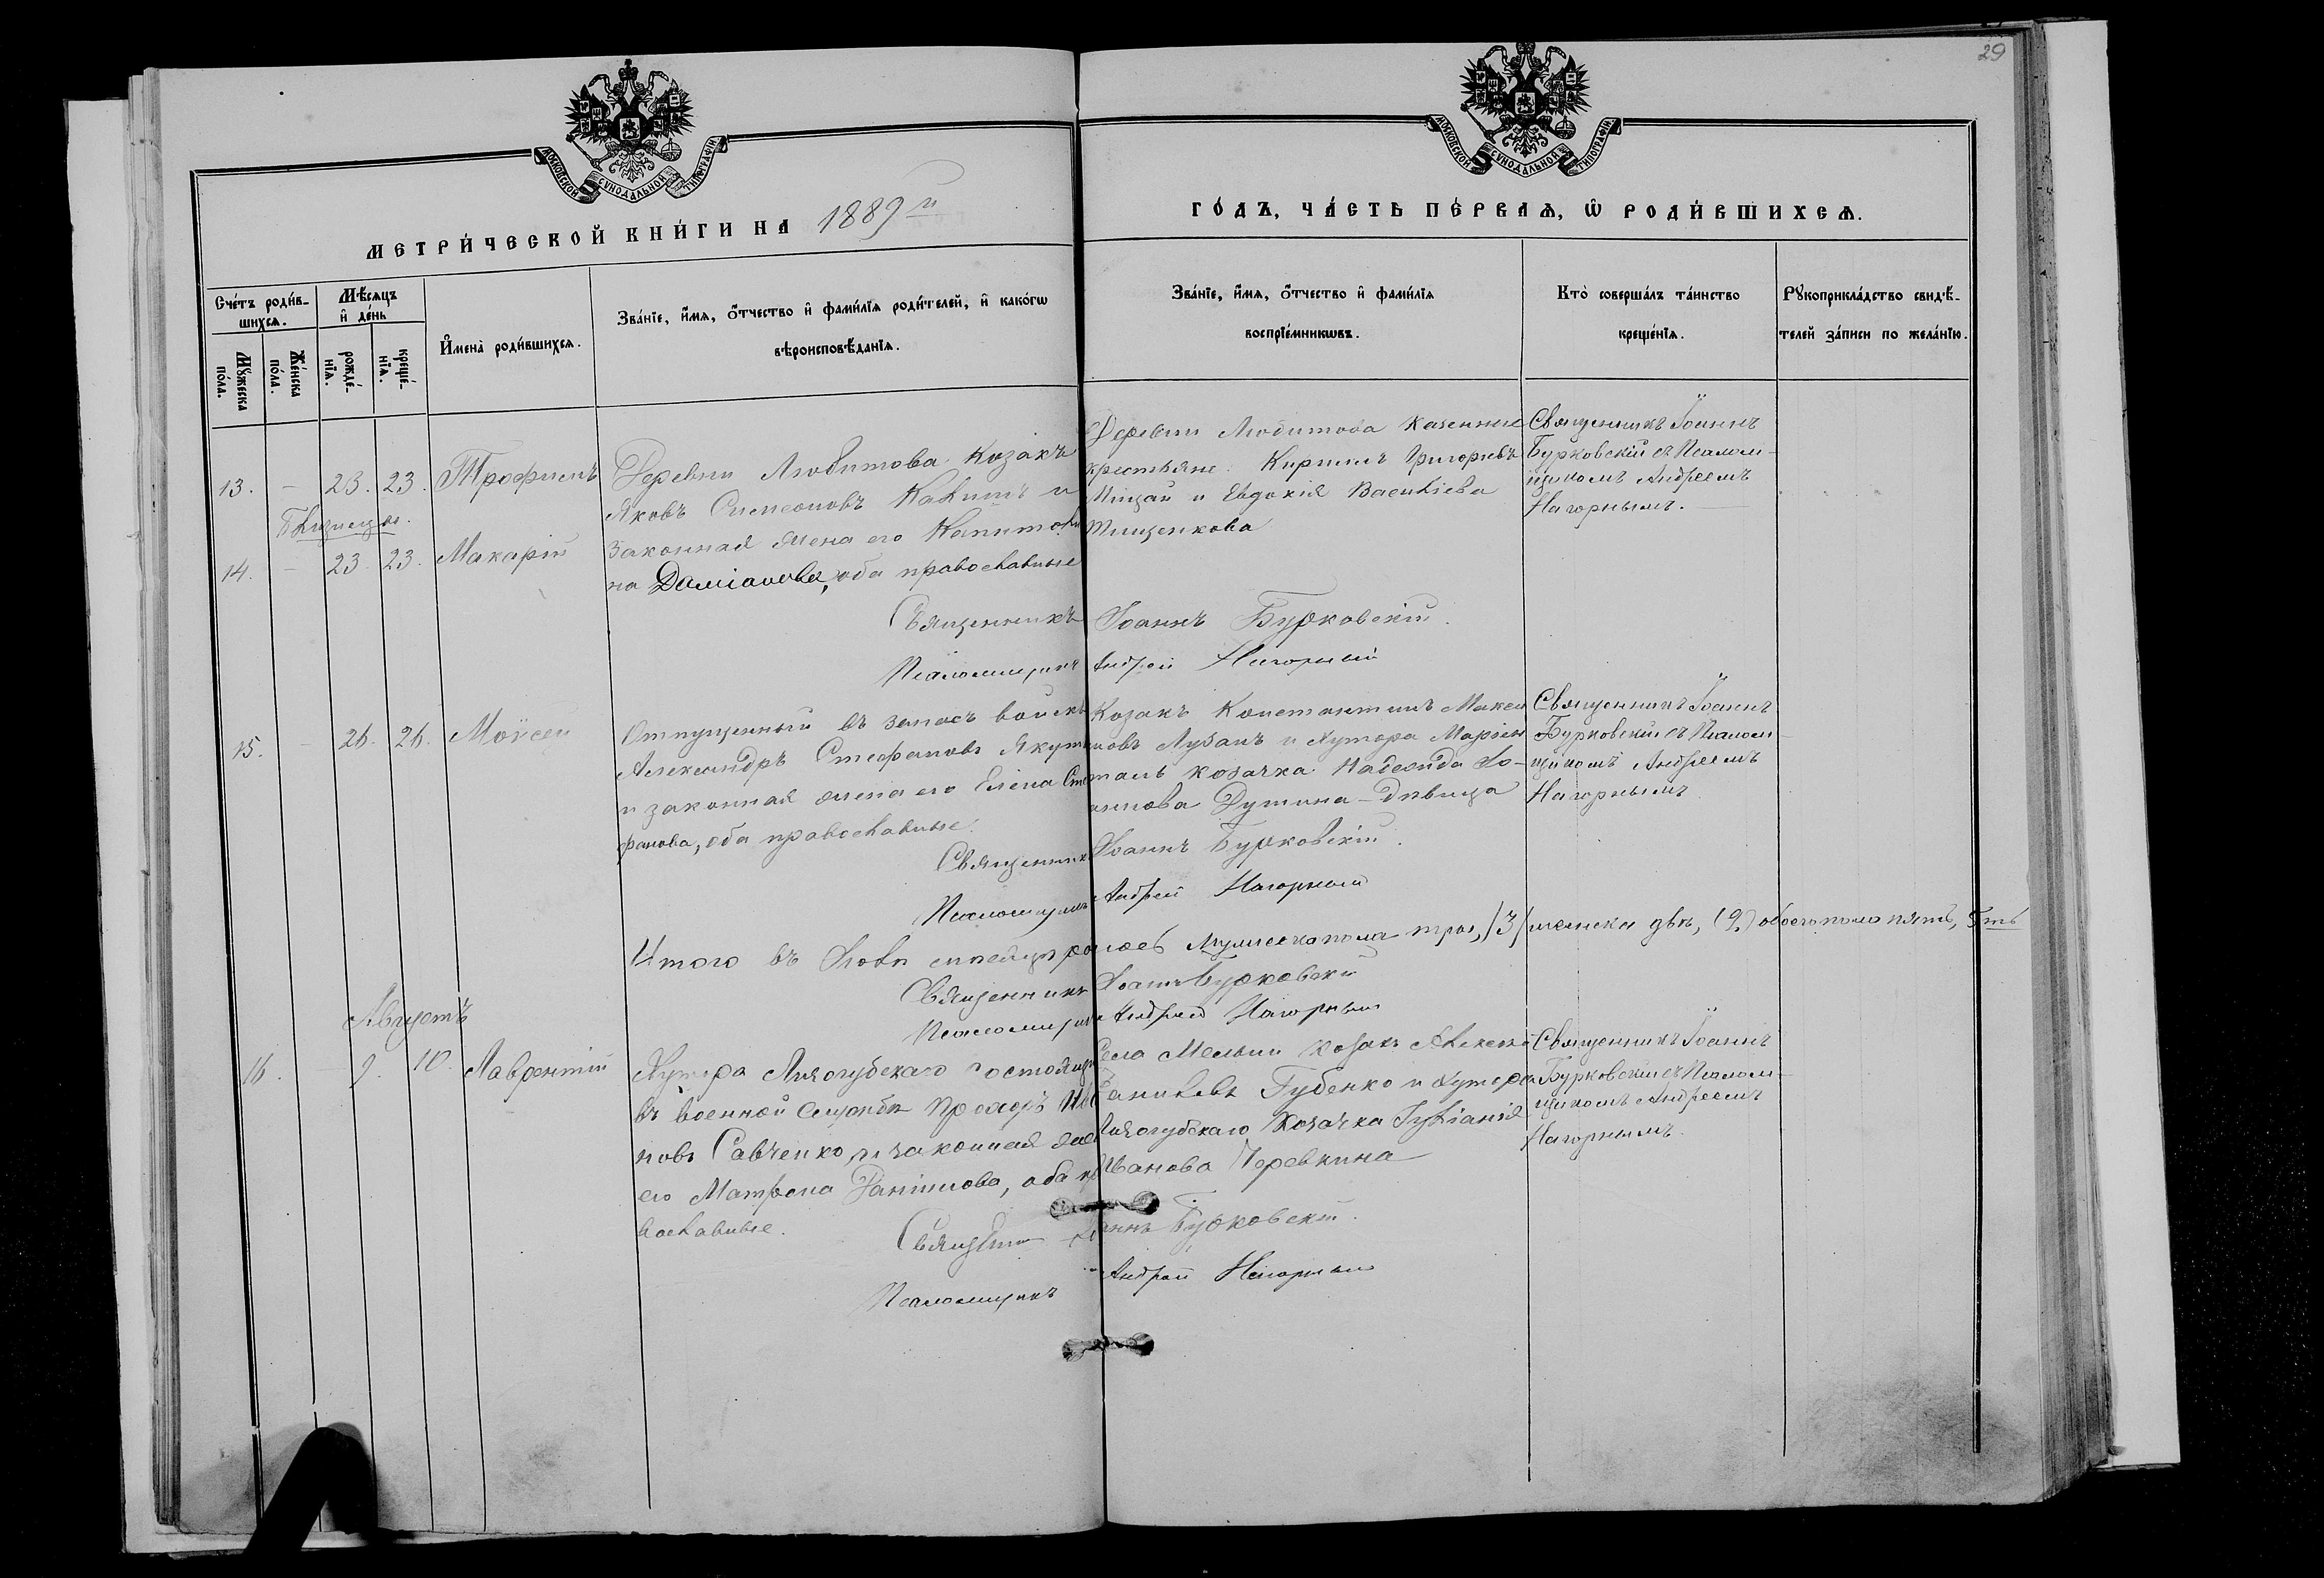 29
МОСКОВСКОЙ СѴНОДАЛЬНОЙ ТИПОГРАФІИ
МОСКОВСКОЙ СѴНОДАЛЬНОЙ ТИПОГРАФІИ
МЕТРИ́ЧЕСКОЙ КНИ́ГИ НА 1889й
ГО́ДЪ, ЧА́СТЬ ПЕ́РВАѦ, Ѡ РОДИ́ВШИХСѦ.
Сче́тъ роди́в-
шихсѧ.
Мꙋ́жеска по́ла.
Же́нска по́ла.
Мѣ́сѧцъ и҆ де́нь
рожде́-
нїѧ.
креще́-
нїѧ.
И҆мена̀ роди́вшихсѧ.
Зва́нїе, и҆́мѧ, ѻ҆́тчество и҆ фами́лїѧ роди́телей, и҆ како́гѡ
вѣроисповѣ́данїѧ.
Зва́нїе, и҆́мѧ, ѻ҆́тчество и҆ фами́лїѧ
воспрїе́мникѡвъ.
Кто̀ соверша́лъ та́инство
креще́нїѧ.
Рꙋкоприкла́дство свидѣ́-
телей за́писи по жела́нїю.
13. – 23. 23. Трофимъ
Близнецы.
14. – 23. 23. Макарій
Деревни Любитова Козакъ
Яковъ Симеоновъ и
законная жена его Капитоли
на Даміанова, оба православные
Деревни Любитова казенные
крестьяне Кириллъ Григорьевъ
Мицай и Евдокія Васильева
Тищенкова
Священникъ Іоаннъ
Бурковскій съ Псалом-
щикомъ Андреемъ
Нагорнымъ.
Священникъ Іоаннъ Бурковскій.
Псаломщикъ Андрей Нагорный
15. – 26. 26. Моисей
Отпущенный въ запасъ войскъ
Александръ Стефановъ Якут
и законная жена его Елена Сте
фанова, оба православные.
Козакъ Константинъ Макси
мовъ Лузанъ и Хутора
козачка Надежда Іо-
аннова Дутина – Дѣвица
Священникъ Іоаннъ
Бурковскій съ Псалом-
щикомъ Андреемъ
Нагорнымъ
Священникъ Іоаннъ Бурковскій.
Псаломщикъ Андрей Нагорный
Итого въ Іюлѣ мѣсяцѣ родилось мужеска пола три, /3/ женска двѣ, (2) обоего пола пять, 5ть
Священникъ Іоаннъ Бурковскій
Псаломщикъ Андрей Нагорный
Августъ
16. 9. 10. Лаврентій
Хутора Лизогубскаго состоящій
въ военной службѣ Прохоръ Ива
новъ Савченко, и законная жена
его Матрона Даніилова, оба пра
вославные.
Села Мельни козакъ Алексѣй
Даниловъ Губенко и Хутора
Лизогубскаго Козачка Іуліанія
Иванова Черевкина
Священникъ Іоаннъ
Бурковскій съ Псалом-
щикомъ Андреемъ
Нагорнымъ.
Священникъ Іоаннъ Бурковскій.
Псаломщикъ Андрей Нагорный